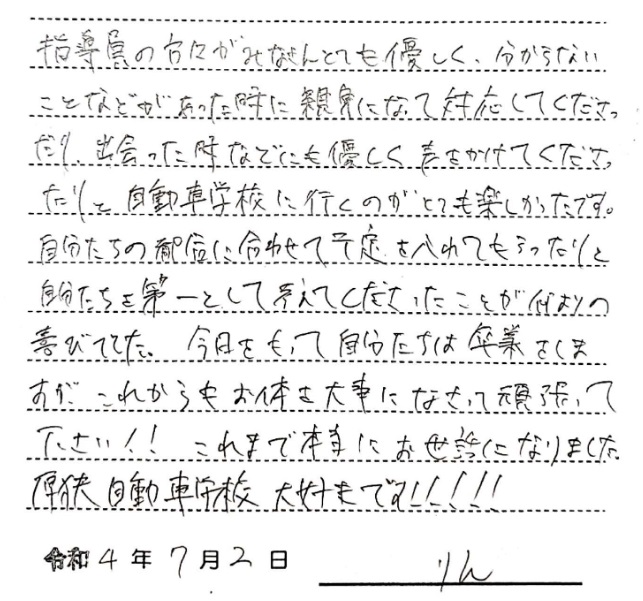 指導員の方々がみなさんとても優しく、分からない
ことなどがあった時に親身になって対応してくださっ
たり、出会った時などにも優しく声をかけてくださっ
たりと自動車学校に行くのがとても楽しかったです。
自分たちの都合に合わせて予定を入れてもらったりと
自分たちを第一として考えてくださったことが何よりの
喜びでした。今日をもって自分たちは卒業をしま
すが これからもお体を大事になさって頑張って
下さい!! これまで本当にお世話になりました
厚狭自動車学校 大好きです!!!!!
令和4年7月2日
りん